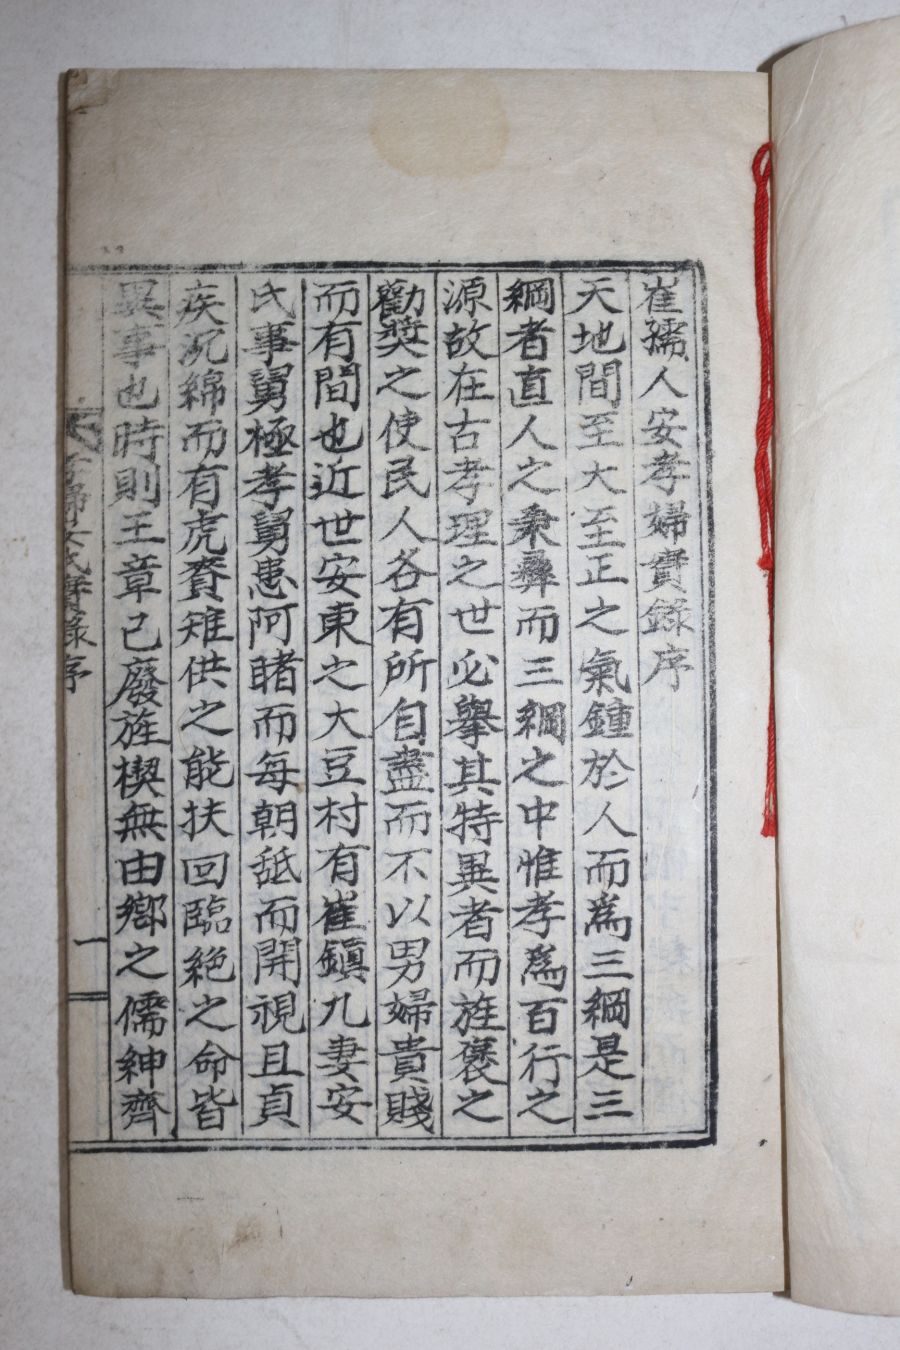 崔孺人安孝婦實錄序
天地間至大至正之氣鍾於人而爲三綱是三
綱者直人之秉彝而三綱之中惟孝爲百行之
源故在古孝理之世必擧其特異者而旌褒之
勸奬之使民人各有所自盡而不以男婦貴賤
而有間也近世安東之大豆村有崔鎭九妻安
氏事舅極孝舅患阿睹而每朝舐而開視且貞
疾沉綿而有虎賚雉供之能扶回臨絶之命皆
異事也時則王章已廢旌楔無由鄕之儒紳齊
孝婦安氏實錄序
一